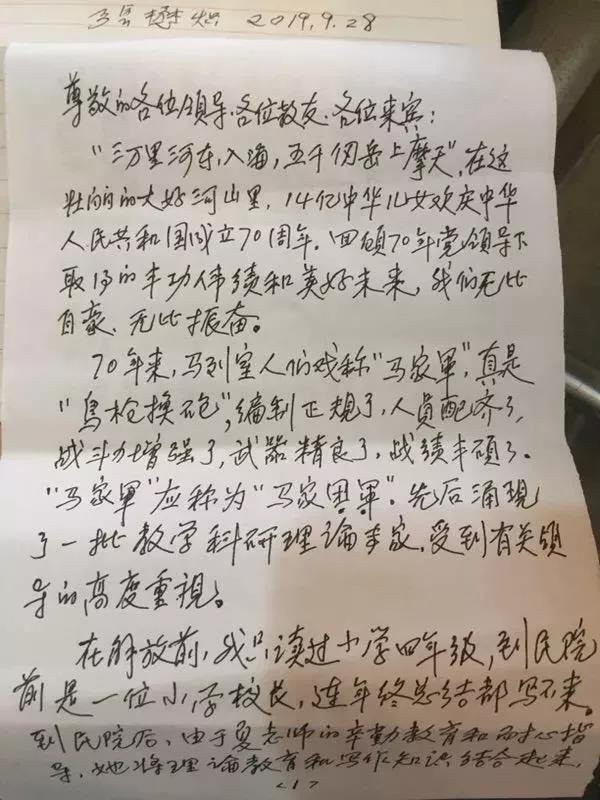 2019.9.28
尊敬的各位领导、各位教友、各位来宾:
"三万里河东入海,五千仞岳上摩天",在这
壮丽的大好河山里,14亿中华儿女欢庆中华
人民共和国成立70周年。回顾70年党领导下
取得的丰功伟绩和美好未来,我们无比
自豪、无比振奋。
70年来,马列室人们戏称"马家軍",真是
"鸟枪换砲",编制正规了,人員配齐了,
战斗力增强了,武器精良了,战绩丰碩了。
"马家軍"应称为"马家軍"。先后涌現
了一批教学科研理論专家,受到有关领
导的高度重視。
在解放前,我只读过小学四年级,到民院
前是一位小学校长,连年终总结都写不来。
到民院后,由于夏老师的辛勤教育和耐心指
导,她将理論教育和写作知识结合起来,
<1>